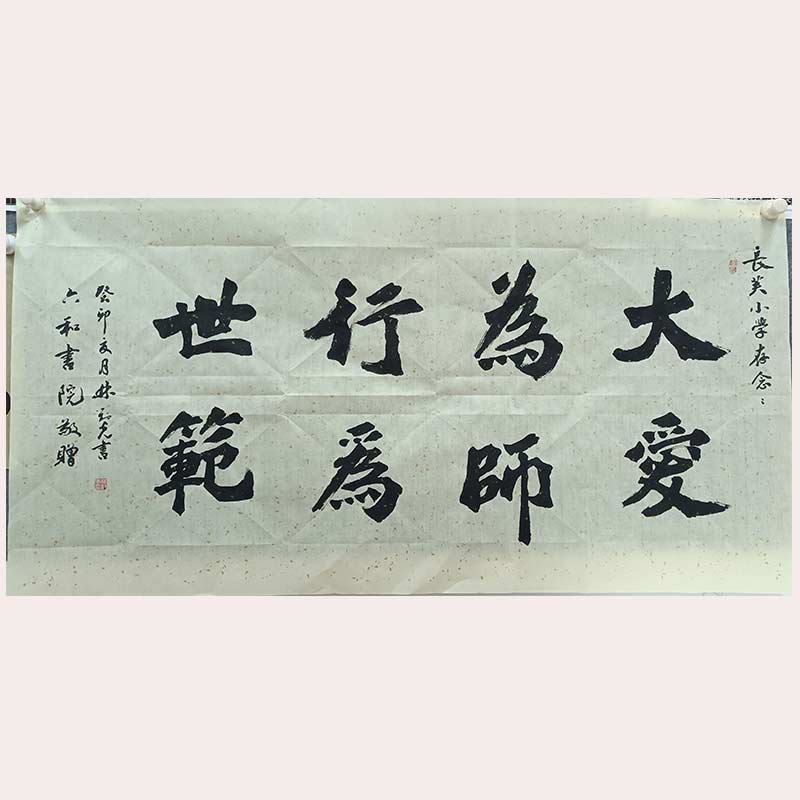 長芙小學存念
大愛
為師
行爲
世範
癸卯夏月林 書
六和書院敬贈